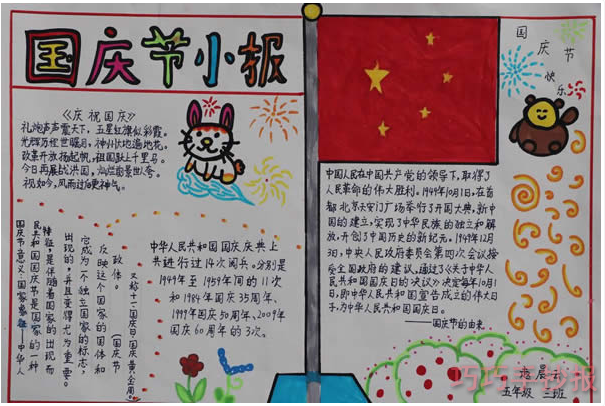 国庆节小报
《庆祝国庆》
礼炮声声震天下，五星红旗似彩霞。
光辉历程世瞩目，神州大地遍地花。
改革开放扬起帆，祖国跃上千里马。
今日再展
视如今，风雨过后更神气。
国庆节意义：国家象征——中华人
民共和国国庆节是国家的一种
特征，是伴随着国家的出现而
出现的，并且变得尤为重要。
它成为一个独立国家的标志，
反映这个国家的国体和
政体。（国庆节
又称十一、国庆日、国庆黄金周）
中华人民共和国国庆庆典上
共进行过14次阅兵。分别是
1949年至1959年间的11次
和1984年国庆35周年、
1999年国庆50周年、2009年
国庆60周年的3次。
国庆节
快乐
中国人民在中国共产党的领导下，取得了
人民革命的伟大胜利。1949年10月1日，在首
都北京天安门广场举行了开国大典，新中
国的建立，实现了中华民族的独立和解
放，开创了中国历史的新纪元。1949年12月
3日，中央人民政府委员会第四次会议接
受全国政府的建议，通过了《关于中华人
民共和国国庆日的决议》决定每年10月1
日，即中华人民共和国宣告成立的伟大日
子，为中华人民共和国国庆日。
——国庆节的由来
晨
五年级 三班
巧巧手抄报